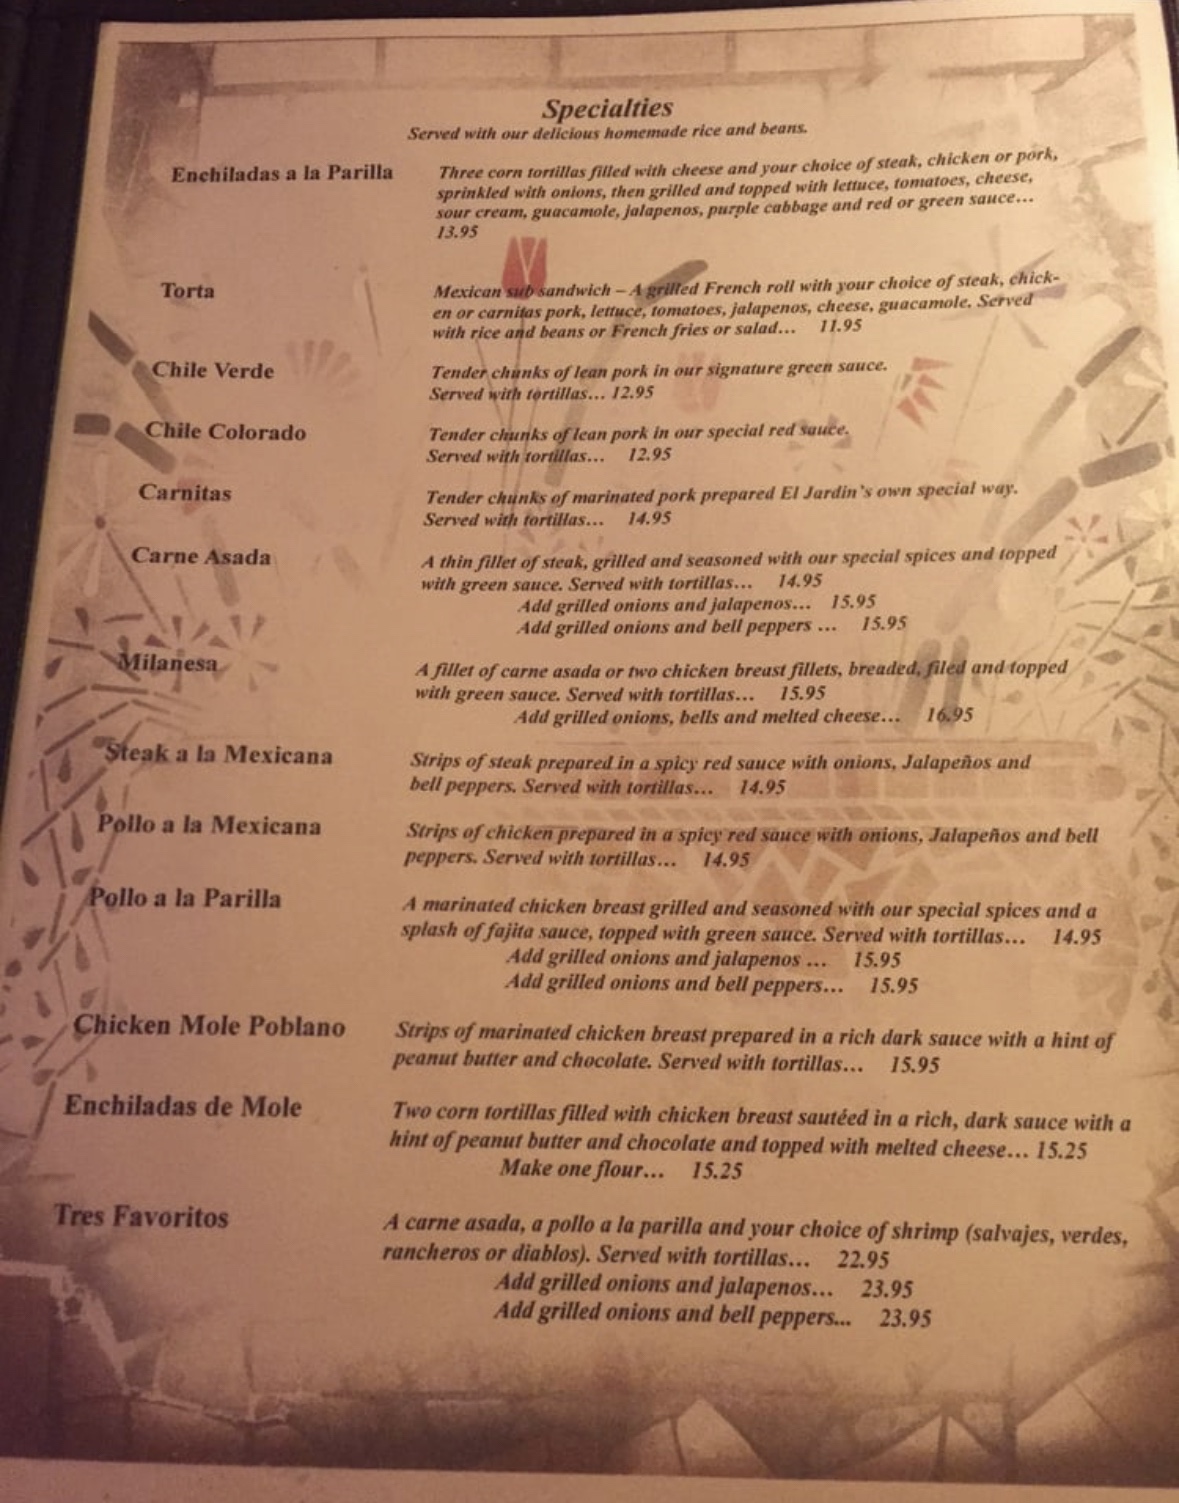 Specialties
Served with our delicious homemade rice and beans.
Enchiladas a la Parilla
Three corn tortillas filled with cheese and your choice of steak, chicken or pork,
sprinkled with onions, then grilled and topped with lettuce, tomatoes, cheese,
sour cream, guacamole, jalapenos, purple cabbage and red or green sauce...
13.95
Torta
Mexican sub sandwich – A grilled French roll with your choice of steak, chick-
en or carnitas pork, lettuce, tomatoes, jalapenos, cheese, guacamole. Served
with rice and beans or French fries or salad... 11.95
Chile Verde
Tender chunks of lean pork in our signature green sauce.
Served with tortillas... 12.95
Chile Colorado
Tender chunks of lean pork in our special red sauce.
Served with tortillas... 12.95
Carnitas
Tender chunks of marinated pork prepared El Jardin's own special way.
Served with tortillas... 14.95
Carne Asada
A thin fillet of steak, grilled and seasoned with our special spices and topped
with green sauce. Served with tortillas... 14.95
Add grilled onions and jalapenos... 15.95
Add grilled onions and bell peppers ... 15.95
Milanesa
A fillet of carne asada or two chicken breast fillets, breaded, filed and topped
with green sauce. Served with tortillas... 15.95
Add grilled onions, bells and melted cheese... 16.95
Steak a la Mexicana
Strips of steak prepared in a spicy red sauce with onions, Jalapeños and
bell peppers. Served with tortillas... 14.95
Pollo a la Mexicana
Strips of chicken prepared in a spicy red sauce with onions, Jalapeños and bell
peppers. Served with tortillas... 14.95
Pollo a la Parilla
A marinated chicken breast grilled and seasoned with our special spices and a
splash of fajita sauce, topped with green sauce. Served with tortillas... 14.95
Add grilled onions and jalapenos ... 15.95
Add grilled onions and bell peppers... 15.95
Chicken Mole Poblano
Strips of marinated chicken breast prepared in a rich dark sauce with a hint of
peanut butter and chocolate. Served with tortillas... 15.95
Enchiladas de Mole
Two corn tortillas filled with chicken breast sautéed in a rich, dark sauce with a
hint of peanut butter and chocolate and topped with melted cheese... 15.25
Make one flour... 15.25
Tres Favoritos
A carne asada, a pollo a la parilla and your choice of shrimp (salvajes, verdes,
rancheros or diablos). Served with tortillas... 22.95
Add grilled onions and jalapenos... 23.95
Add grilled onions and bell peppers... 23.95